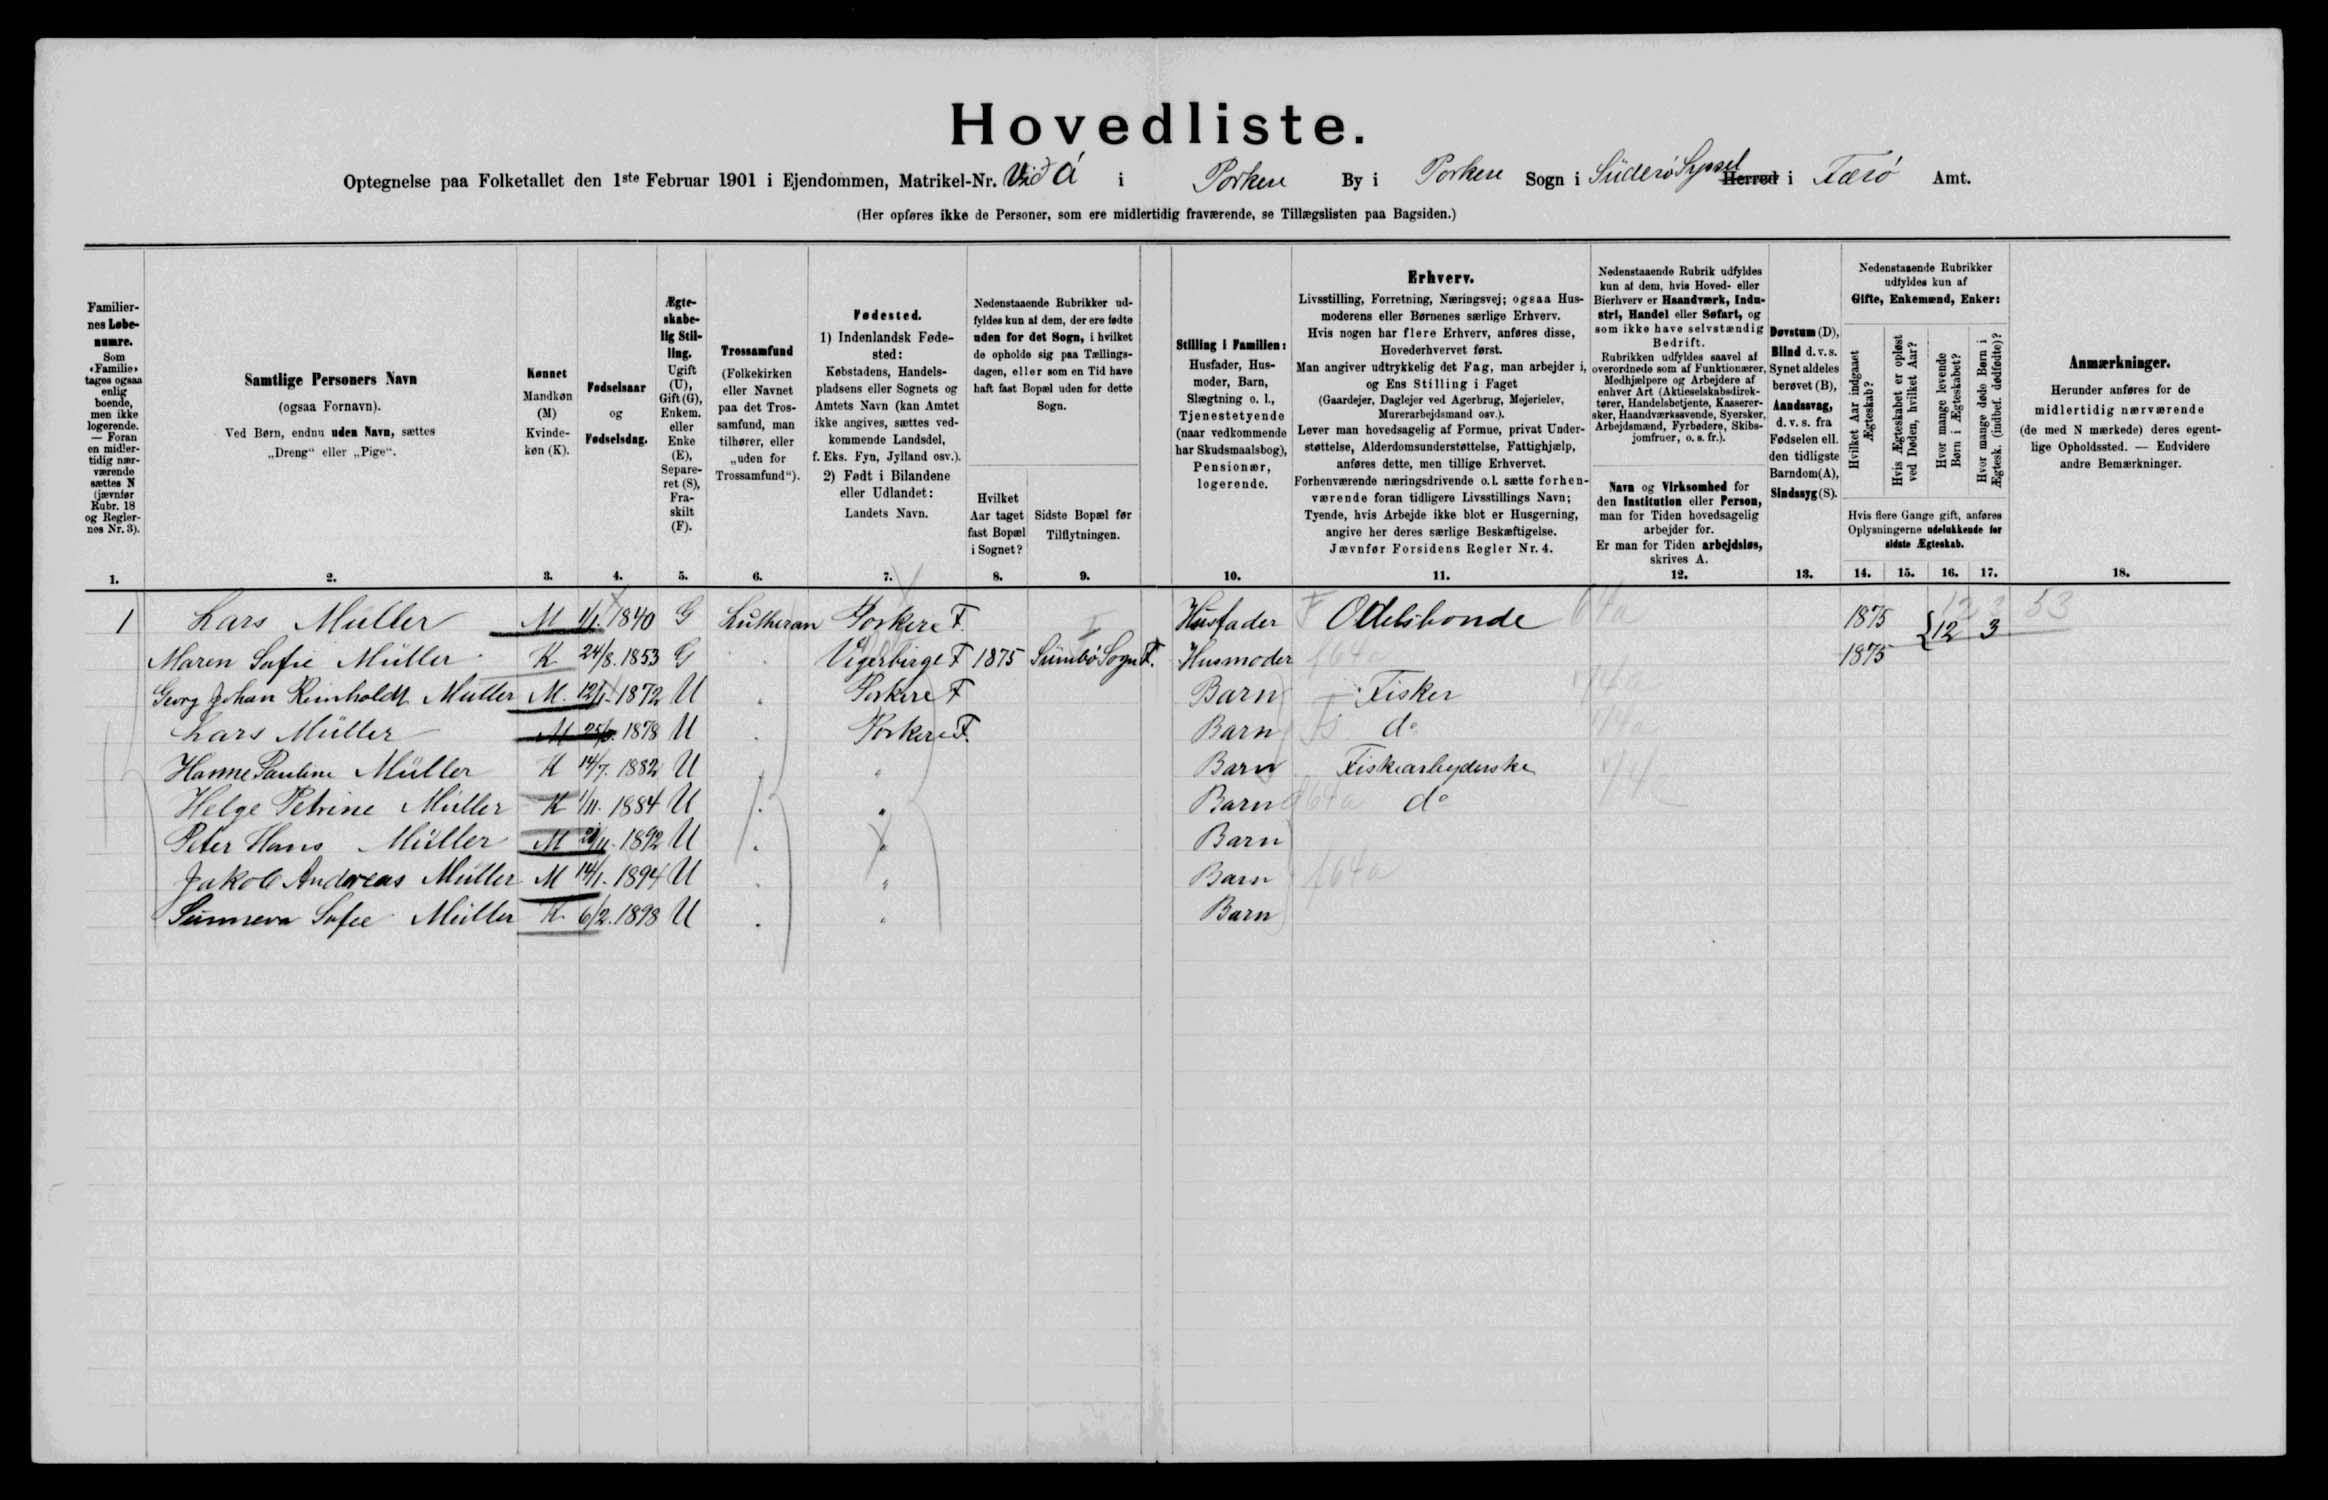 Hovedliste.
Optegnelse paa Folketallet den 1ste Februar 1901 i Ejendommen, Matrikel-Nr. Við Á i Porkere By i Porkere Sogn i Süderö Syssel Herred i Færö Amt.
(Her opføres ikke de Personer, som ere midlertidig fraværende, se Tillægslisten paa Bagsiden.)
Familiernes Løbenumre.
Som «Familie» tages ogsaa enlig boende, men ikke logerende. — Foran en midlertidig nærværende sættes N (jævnfør Rubr. 18 og Reglernes Nr. 3).
Samtlige Personers Navn
(ogsaa Fornavn).
Ved Børn, endnu uden Navn, sættes
„Dreng“ eller „Pige“.
Kønnet
Mandkøn (M)
Kvindekøn (K).
Fødselsaar
og
Fødselsdag.
Ægteskabelig Stilling.
Ugift (U), Gift (G), Enkem. eller Enke (E), Separeret (S), Fraskilt (F).
Trossamfund
(Folkekirken eller Navnet paa det Trossamfund, man tilhører, eller „uden for Trossamfund“).
Fødested.
1) Indenlandsk Fødested:
Købstadens, Handelspladsens eller Sognets og Amtets Navn (kan Amtet ikke angives, sættes vedkommende Landsdel, f. Eks. Fyn, Jylland osv.).
2) Født i Bilandene eller Udlandet:
Landets Navn.
Nedenstaaende Rubrikker udfyldes kun af dem, der ere fødte uden for det Sogn, i hvilket de opholde sig paa Tællingsdagen, eller som en Tid have haft fast Bopæl uden for dette Sogn.
Hvilket Aar taget fast Bopæl i Sognet?
Sidste Bopæl før Tilflytningen.
Stilling i Familien:
Husfader, Husmoder, Barn, Slægtning o. l., Tjenestetyende (naar vedkommende har Skudsmaalsbog), Pensionær, logerende.
Erhverv.
Livsstilling, Forretning, Næringsvej; ogsaa Husmoderens eller Børnenes særlige Erhverv.
Hvis nogen har flere Erhverv, anføres disse, Hovederhvervet først.
Man angiver udtrykkelig det Fag, man arbejder i, og Ens Stilling i Faget
(Gaardejer, Daglejer ved Agerbrug, Mejerielev, Murerarbejdsmand osv.).
Lever man hovedsagelig af Formue, privat Understøttelse, Alderdomsunderstøttelse, Fattighjælp, anføres dette, men tillige Erhvervet.
Forhenværende næringsdrivende o. l. sætte forhenværende foran tidligere Livsstillings Navn;
Tyende, hvis Arbejde ikke blot er Husgerning, angive her deres særlige Beskæftigelse.
Jævnfør Forsidens Regler Nr. 4.
Nedenstaaende Rubrik udfyldes kun af dem, hvis Hoved- eller Bierhverv er Haandværk, Industri, Handel eller Søfart, og som ikke have selvstændig Bedrift.
Rubrikken udfyldes saavel af overordnede som af Funktionærer, Medhjælpere og Arbejdere af enhver Art (Aktieselskabsdirektører, Handelsbetjente, Kassererseker, Haandværkssvende, Syersker, Arbejdsmænd, Fyrbødere, Skibsjomfruer, o. s. fr.).
Navn og Virksomhed for den Institution eller Person, man for Tiden hovedsagelig arbejder for.
Er man for Tiden arbejdsløs, skrives A.
Døvstum (D), Blind d. v. s. Synet aldeles berøvet (B), Aandssvag, d. v. s. fra Fødselen ell. den tidligste Barndom (A), Sindssyg (S).
Nedenstaaende Rubrikker udfyldes kun af
Gifte, Enkemænd, Enker:
Hvilket Aar indgaaet Ægteskab?
Hvis Ægteskabet er opløst ved Døden, hvilket Aar?
Hvor mange levende Børn i Ægteskabet?
Hvor mange døde Børn i Ægtesk. (indbef. dødfødte)?
Hvis flere Gange gift, anføres Oplysningerne udelukkende for sidste Ægteskab.
Anmærkninger.
Herunder anføres for de midlertidig nærværende (de med N mærkede) deres egentlige Opholdssted. — Endvidere andre Bemærkninger.
1. 2. 3. 4. 5. 6. 7. 8. 9. 10. 11. 12. 13. 14. 15. 16. 17. 18.
1 Lars Müller M 1/1 1840 G Lutheran Porkere F. Husfader F Odelsbonde 64a 1875 12 3 12 3 53
Maren Sofie Müller K 24/8. 1853 G Vigerbirge F 1875 Sümbö Sogn F. Husmoder f64a 1875
Georg Johan Reinholdt Müller M. 12/1. 1872 U Porkere F Barn Fisker
Lars Müller M 1878 U Porkere F. Barn do
Hanne Pauline Müller K 14/7. 1882 U " Barn Fiskearbejderske 74
Helge Petrine Müller K 1/11. 1884 U " Barn 64a do
Peter Hans Müller M 1892 U " Barn
Jakob Andreas Müller M 14/1. 1894 U " Barn f64a
Sunneva Sofie Müller K 6/2. 1898 U " Barn